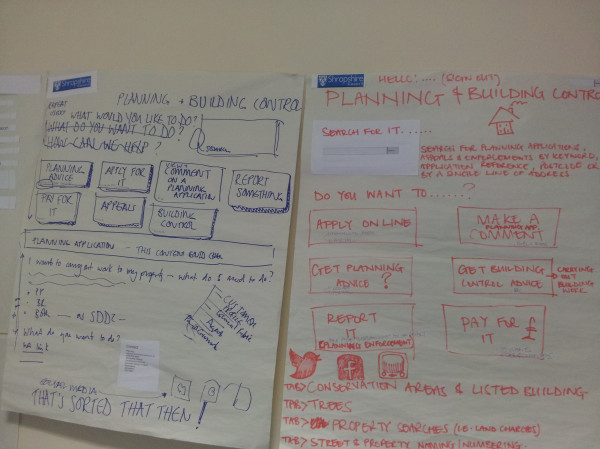 Shropshire
PLANNING + BUILDING CONTROL
WHAT WOULD YOU LIKE TO DO?
WHAT DO YOU WANT TO DO?
HOW CAN WE HELP?
SEARCH
PLANNING ADVICE
APPLY FOR IT
COMMENT ON A PLANNING APPLICATION
REPORT SOMETHING
PAY FOR IT
APPEALS
BUILDING CONTROL
PLANNING APPLICATION - THIS CONTENT
I want to carry out work to my property - what do I need to do?
PP
BR
What do you want to do?
CUSTOMER
SOCIAL MEDIA
THAT'S SORTED THAT THEN!
Shropshire
HELLO: .... (SIGN OUT)
PLANNING & BUILDING CONTROL
SEARCH FOR IT.....
SEARCH FOR PLANNING APPLICATIONS,
APPEALS & ENFORCEMENTS BY KEYWORD,
APPLICATION REFERENCE, POSTCODE OR
BY A SINGLE LINE OF ADDRESS.
DO YOU WANT TO......?
APPLY ONLINE
MAKE A
PLANNING APP
COMMENT
GET PLANNING
ADVICE ?
GET BUILDING
CONTROL ADVICE
CARRYING
OUT
BUILDING
WORK
REPORT
IT
(PLANNING ENFORCEMENT)
PAY FOR
IT £
TAB> CONSERVATION AREAS & LISTED BUILDING
TAB> TREES
TAB> PROPERTY SEARCHES (IE-LAND CHARGES)
TAB> STREET & PROPERTY NAMING/NUMBERING.